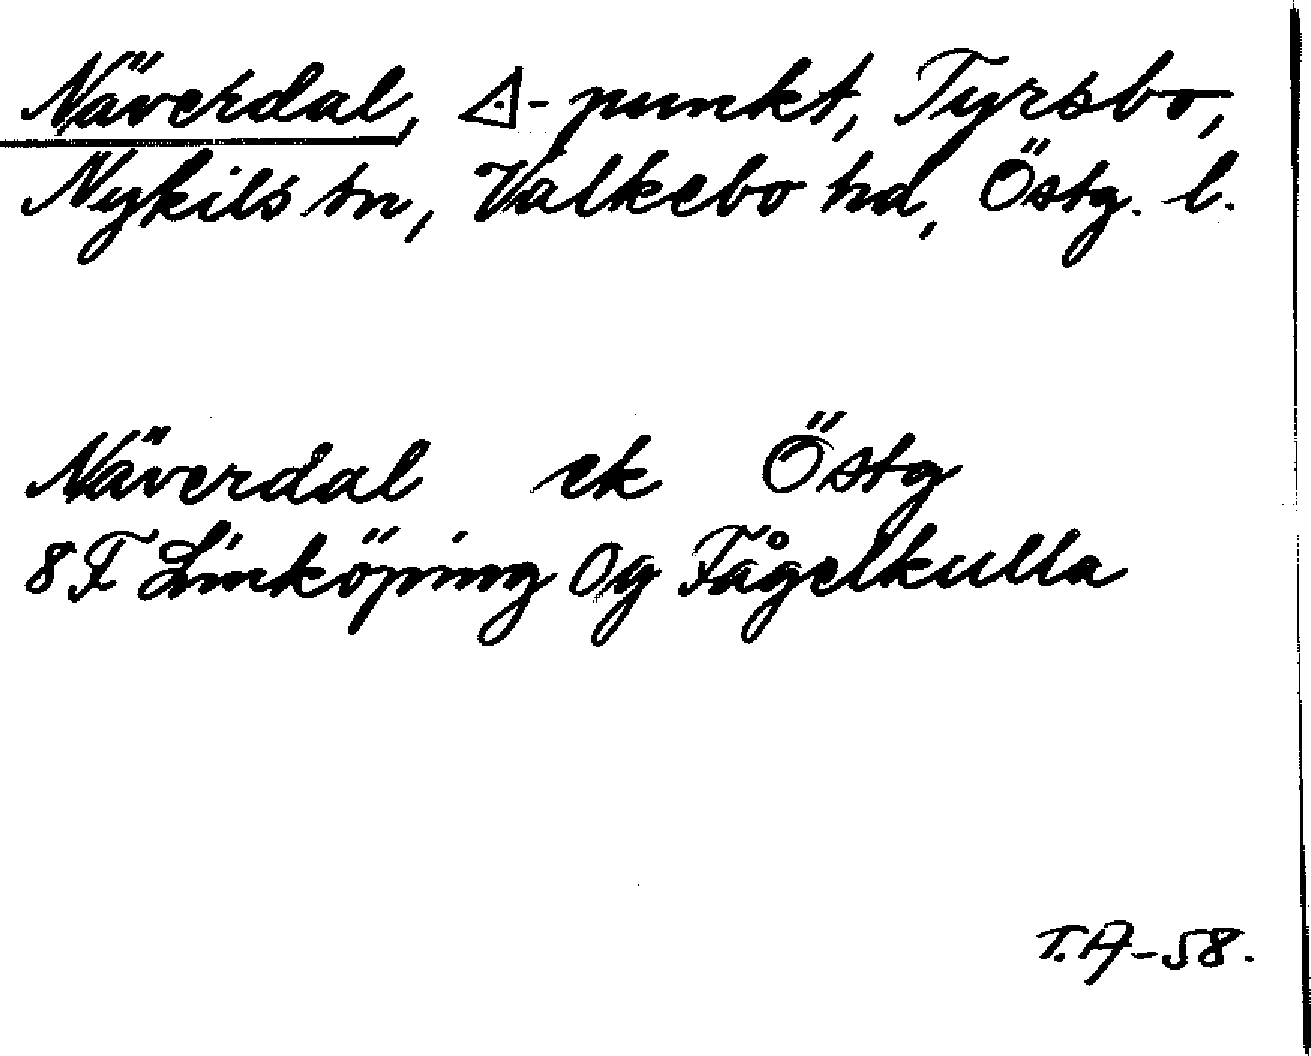 Näverdal, ⊿-punkt, Tyrsbo,
Nykils sn, Valkebo hd, Östg. l.
Näverdal ek Östg
8F Linköping Og Fågelkulla
T.A-58.